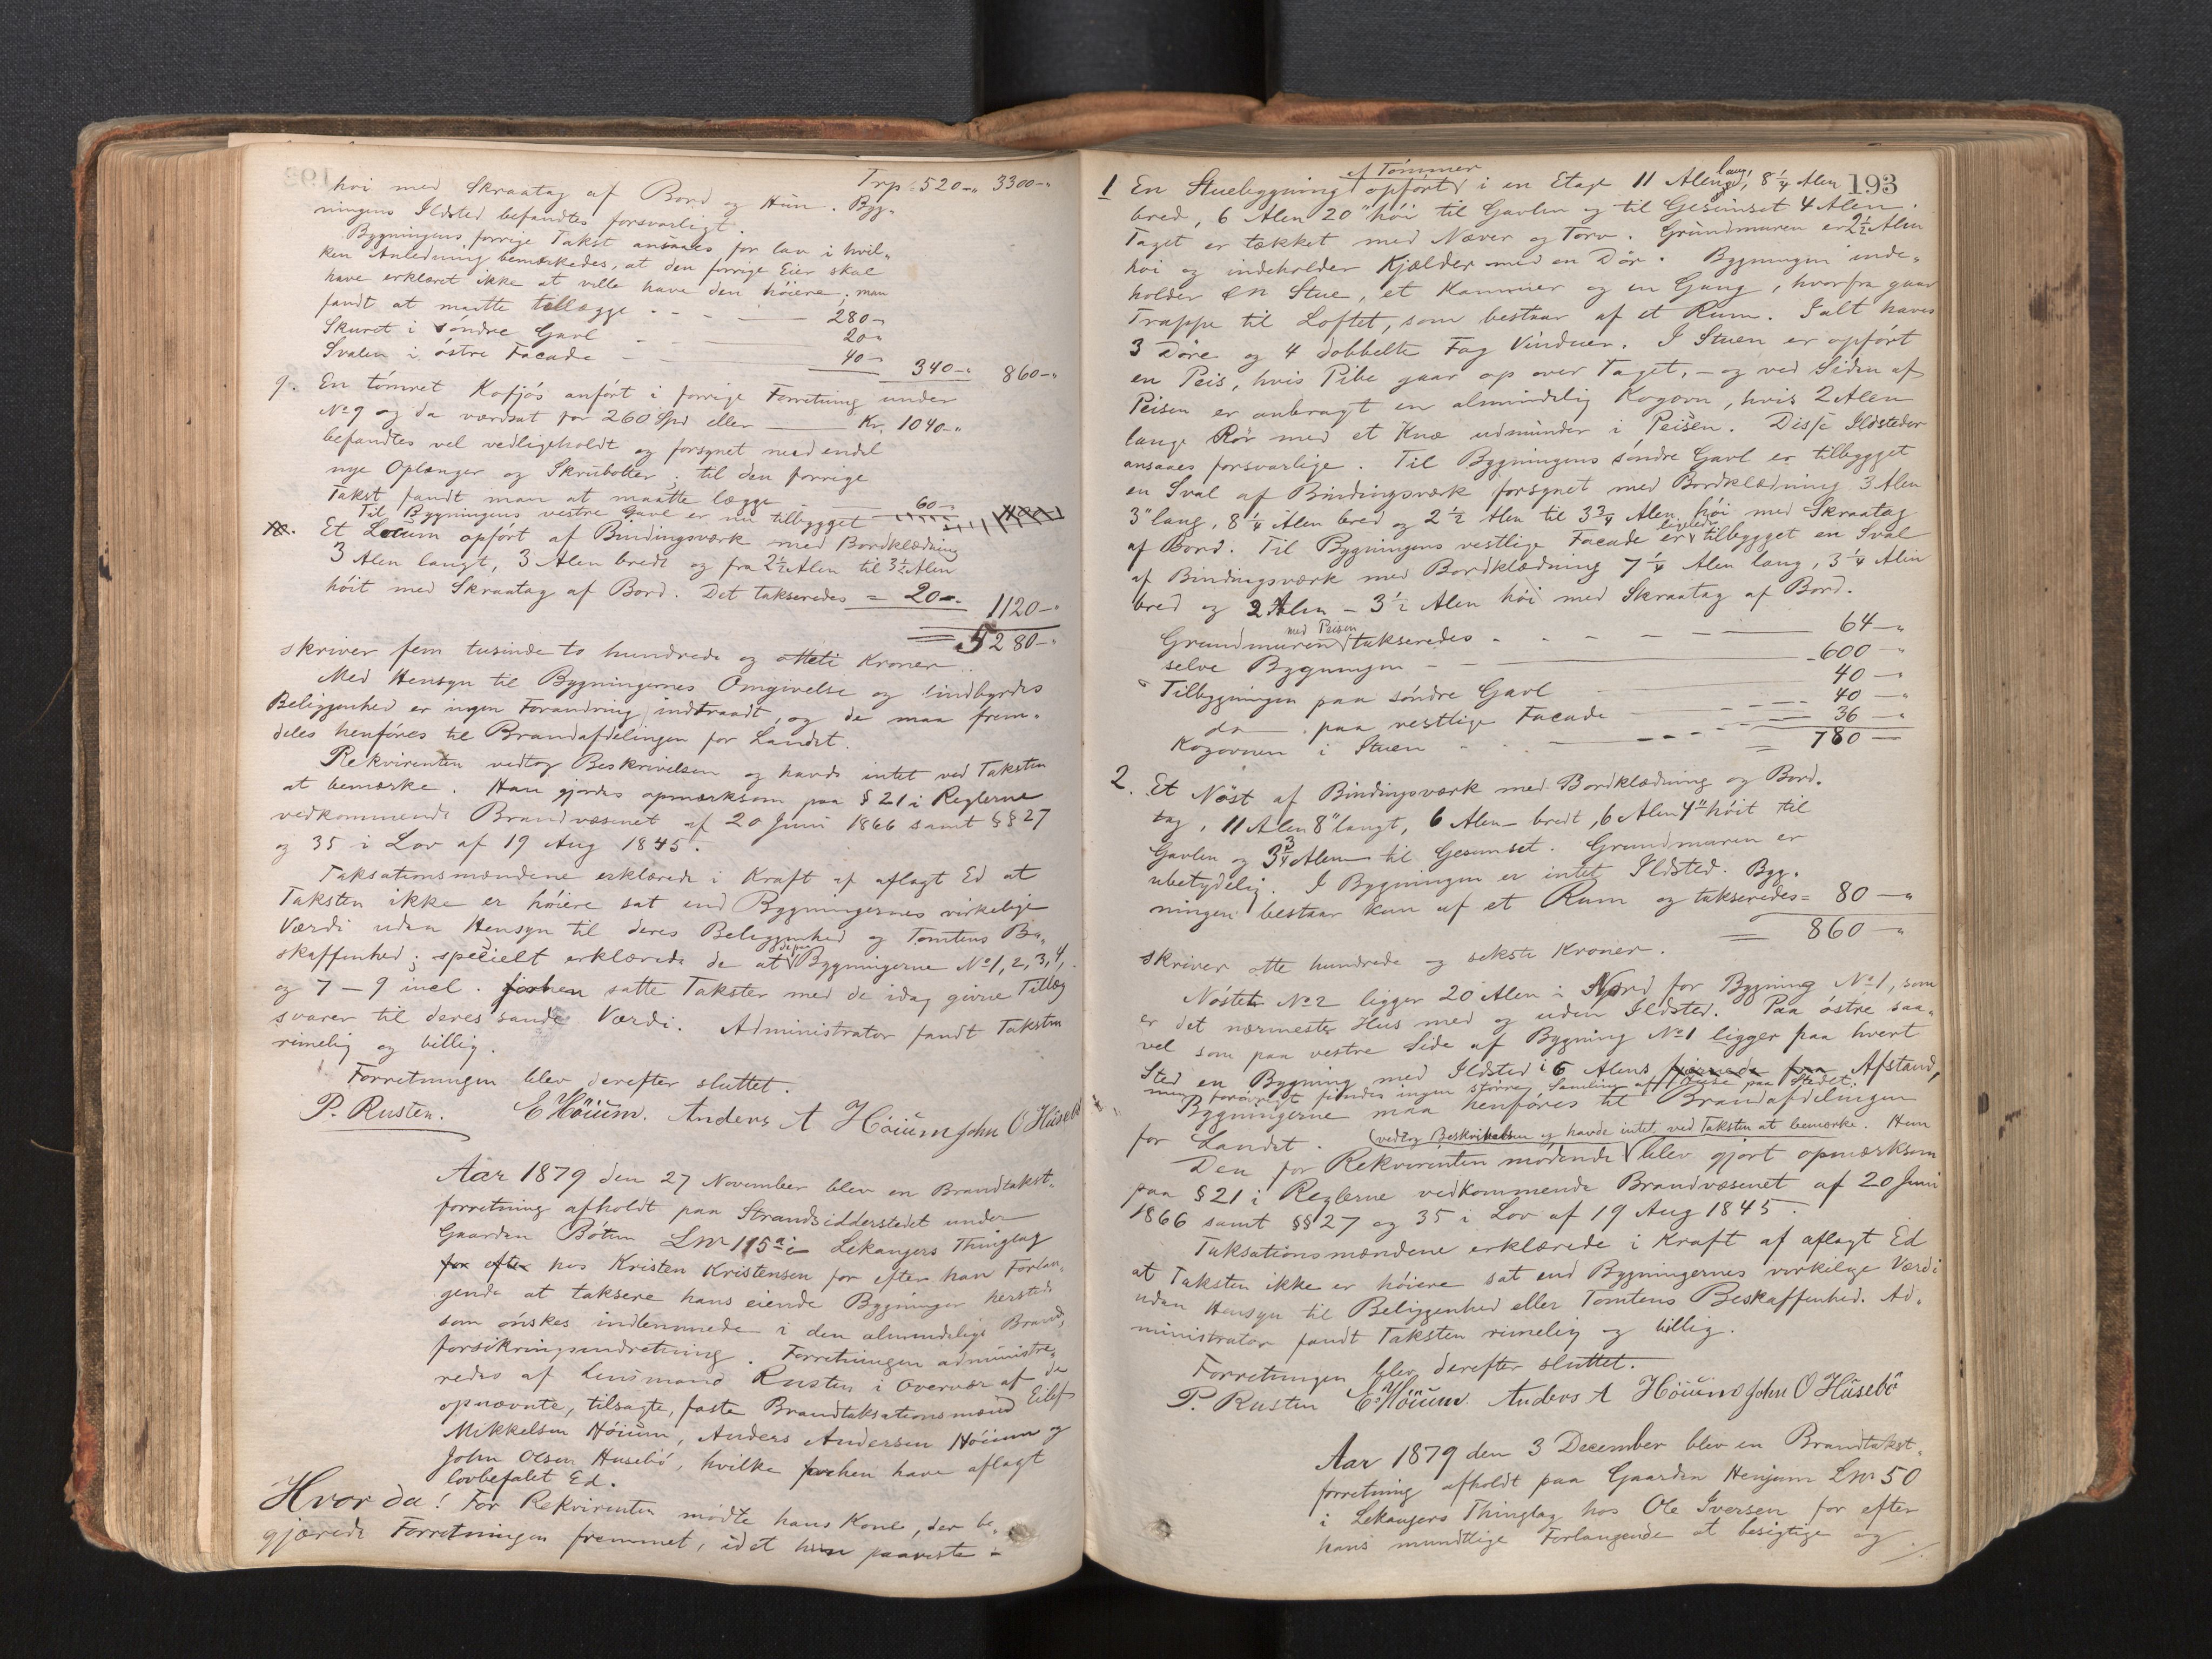 Trp 520-" 3300-"
høi med Skraatag af Bord og Hun. Byg-
ningens Ildsted befandtes forsvarligt.
Bygningens forrige Takst ansaaes for lav i hvil-
ken Anledning bemærkedes, at den forrige Eier skal
have erklæret ikke at ville have den høiere; man
fandt at maatte tillægge - - - 280-"
Skuret i søndre Gavl - - 20-"
Svalen i østre Facade - - 40-" 340-" 860-"
9. En tømret Kofjøs anført i forrige Forretning under
No 9 og da værdsat for 260 Spd eller Kr. 1040-"
befandtes vel vedligeholdt og forsynet med endel
nye Oplænger og Skrubolter; til den forrige
Takst fandt man at maatte lægge 60-"
Til Bygningens vestre Gavl er nu tilbygget
Et Locum opført af Bindingsværk med Bordklædning
3 Alen langt, 3 Alen bredt og fra 2½ Alen til 3½ Alen
høit med Skraatag af Bord. Det takseredes = 20-" 1120-"
= 5280-"
skriver fem tusinde to hundrede og otteti Kroner.
Med Hensyn til Bygningernes Omgivelse og indbyrdes
Beliggenhed er ingen Forandring indtraadt, og de maa frem-
deles henføres til Brandafdelingen for Landet.
Rekvirenten vedtog Beskrivelsen og havde intet ved Taksten
at bemærke. Han gjordes opmærksom paa § 21 i Reglerne
vedkommende Brandvæsenet af 20 Juni 1866 samt §§ 27
og 35 i Lov af 19 Aug 1845.
Taksationsmændene erklærede i Kraft af aflagt Ed at
Taksten ikke er høiere sat end Bygningernes virkelige
Værdi uden Hensyn til deres Beliggenhed og Tomtens Be-
skaffenhed; specielt erklærede de at de paa Bygningerne No 1, 2, 3, 4,
og 7 - 9 incl. forhen satte Takster med de idag givne Tillæg
svarer til deres sande Værdi. Administrator fandt Taksten
rimelig og billig.
Forretningen blev derefter sluttet.
P. Rusten. E Høium. Anders A Høium John O Husebø
Aar 1879 den 27 November blev en Brandtakst-
forretning afholdt paa Strandsidderstedet under
Gaarden Bøtun Lnr 115 a i Lekangers Thinglag
for efter hos Kristen Kristensen for efter han Forlan-
gende at taksere hans eiende Bygninger hersteds
som ønskes indlemmede i den almindelige Brand-
forsikringsindretning. Forretningen administre-
redes af Lensmand Rusten i Overvær af de
opnævnte, tilsagte, faste Brandtaksationsmænd Eilef
Mikkelsen Høium, Anders Andersen Høium og
John Olsen Husebø, hvilke forhen have aflagt
lovbefalet Ed.
Hvor da! For Rekvirenten mødte hans Kone, der be-
gjærede Forretningen fremmet, idet hun paaviste -
193
1 En Stuebygning af Tømmer opført i en Etage 11 Alen lang, 8¼ Alen
bred, 6 Alen 20" høi til Gavlen og til Gesimset 4 Alen.
Taget er tækket med Næver og Torv. Grundmuren er 2½ Alen
høi og indeholder Kjælder med en Dør. Bygningen inde-
holder en Stue, et Kammer og en Gang, hvorfra gaar
Trappe til Loftet, som bestaar af et Rum. Ialt haves
3 Døre og 4 dobbelte Fag Vinduer. I Stuen er opført
en Peis, hvis Pibe gaar op over Taget, - og ved Siden af
Peisen er anbragt en almindelig Kogovn, hvis 2 Alen
lange Rør med et Knæ udmunder i Peisen. Disse Ildsteder
ansaaes forsvarlige. Til Bygningens søndre Gavl er tilbygget
en Sval af Bindingsværk forsynet med Bordklædning 3 Alen
3" lang, 8¼ Alen bred og 2½ Alen til 3¾ Alen høi med Skraatag
af Bord. Til Bygningens vestlige Facade er ligeledes tilbygget en Sval
af Bindingsværk med Bordklædning 7¼ Alen lang, 3¼ Alen
bred og 2 Alen - 3½ Alen høi med Skraatag af Bord.
Grundmuren med Peisen takseredes - - - 64-"
selve Bygningen - - 600-"
Tilbygningen paa søndre Gavl 40-"
do paa vestlige Facade 40-"
Kogovnen i Stuen - - 36-"
= 780-
2. Et Nøst af Bindingsværk med Bordklædning og Bord-
tag, 11 Alen 8" langt, 6 Alen bredt, 6 Alen 4" høit til
Gavlen og 3¾ Alen til Gesimset. Grundmuren er
ubetydelig. I Bygningen er intet Ildsted. Byg-
ningen bestaar kun af et Rum og takseredes = 80-"
= 860-"
skriver otte hundrede og seksti Kroner.
Nøstet No 2 ligger 20 Alen i Nord for Bygning No 1, som
er det nærmeste Hus med og uden Ildsted. Paa østre saa-
vel som paa vestre Side af Bygning No 1 ligger paa hvert
Sted en Bygning med Ildsted i 6 Alens Afstand,
men forøvrigt findes ingen større Samling af Huse paa Stedet.
Bygningerne maa henføres til Brandafdelingen
for Landet.
(vedtog Beskrivelsen og havde intet ved Taksten at bemærke. Hun
Den for Rekvirenten mødende blev gjort opmærksom
paa § 21 i Reglerne vedkommende Brandvæsenet af 20 Juni
1866 samt §§ 27 og 35 i Lov af 19 Aug 1845.
Taksationsmændene erklærede i Kraft af aflagt Ed
at Taksten ikke er høiere sat end Bygningernes virkelige Værdi
uden Hensyn til Beliggenhed eller Tomtens Beskaffenhed. Ad-
ministrator fandt Taksten rimelig og billig.
Forretningen blev derefter sluttet.
P. Rusten E. Høium Anders A Høium John O Husebø
Aar 1879 den 3 December blev en Brandtakst-
forretning afholdt paa Gaarden Henjum Lnr 50
i Lekangers Thinglag hos Ole Iversen for efter
hans mundtlige Forlangende at besigtige og